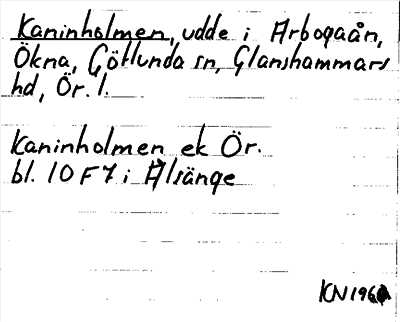 Kaninholmen, udde i Arbogaån,
Ökna, Götlunda sn, Glanshammars
hd, Ör. l.
Kaninholmen ek Ör.
bl. 10 F 7 i Älsänge